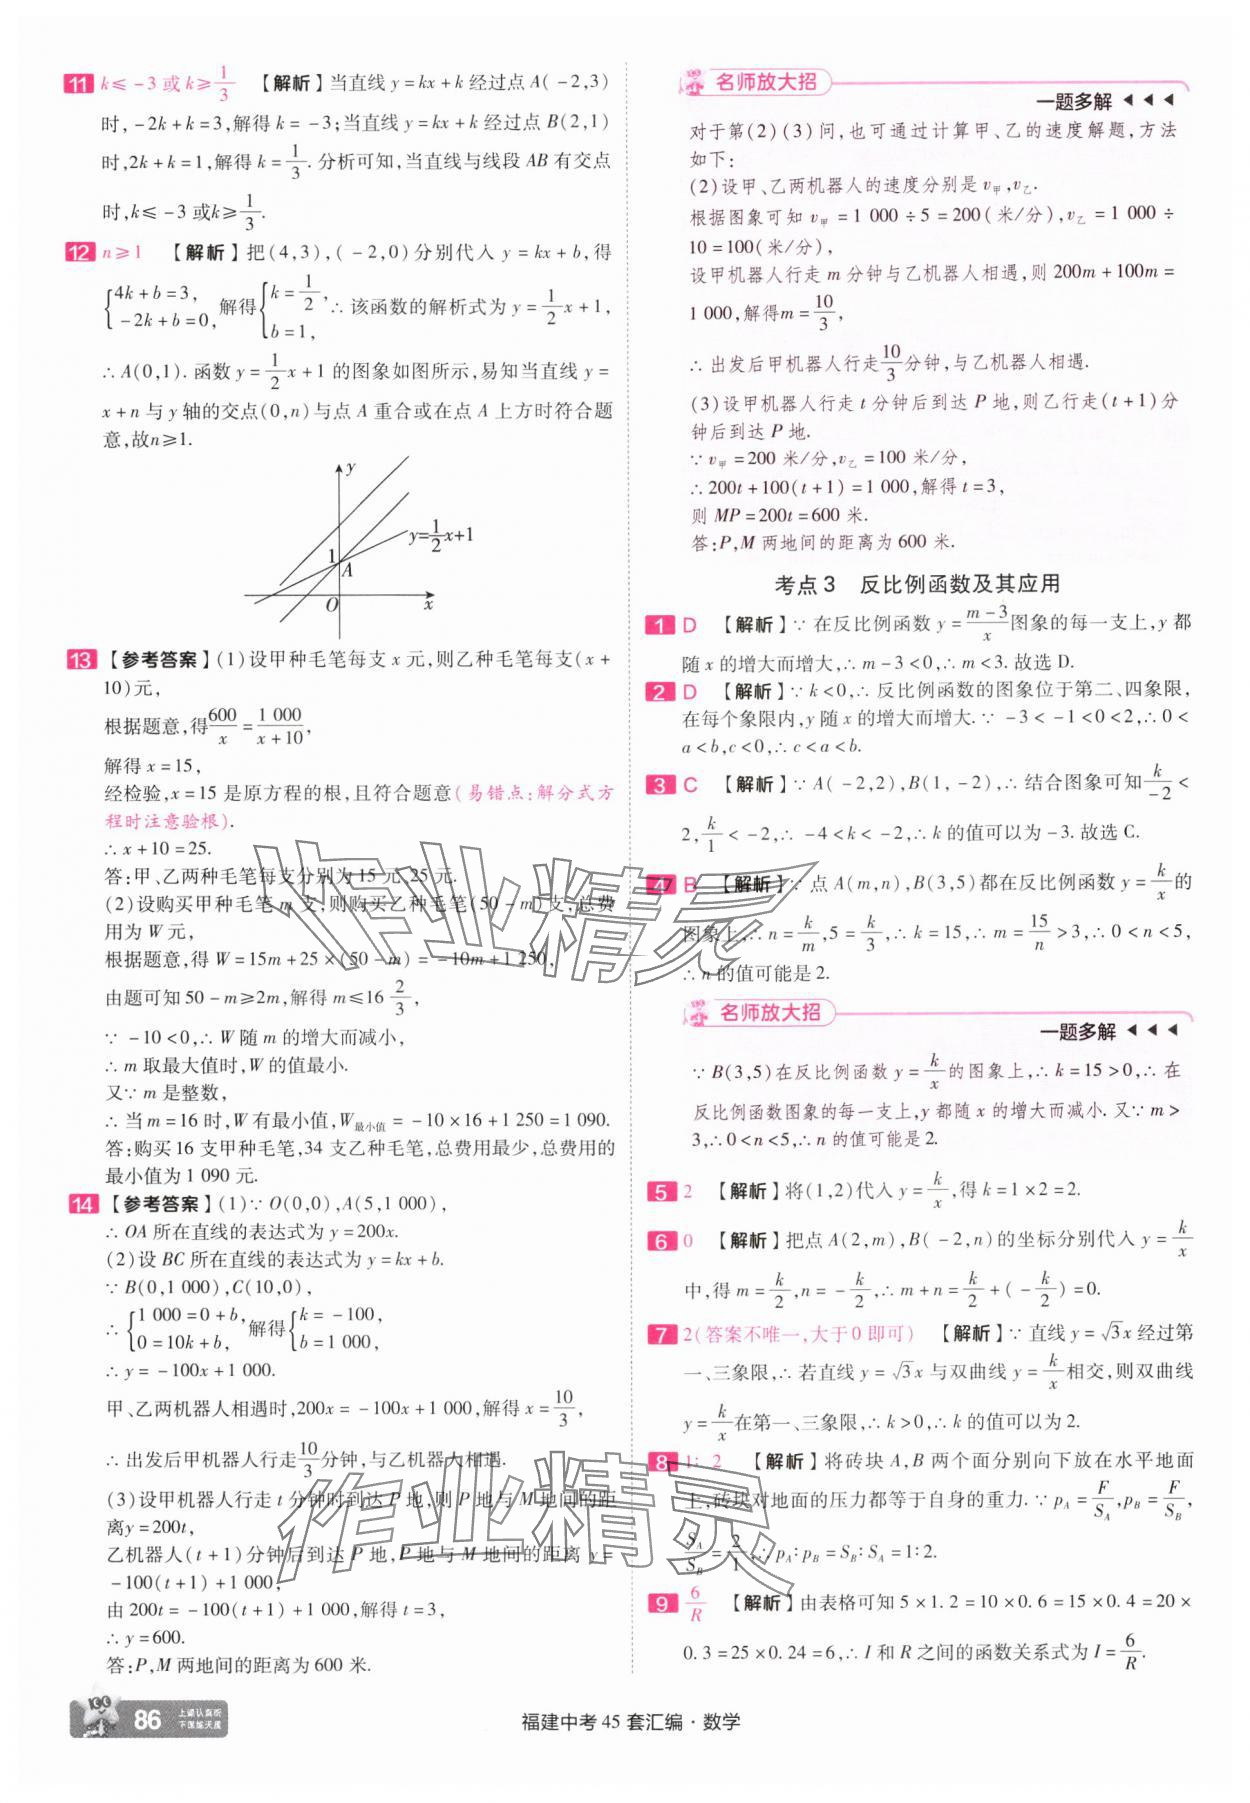 11 k≤-3或k≥1/3 【解析】当直线y=kx+k经过点A(-2,3)
时,-2k+k=3,解得k=-3;当直线y=kx+k经过点B(2,1)
时,2k+k=1,解得k=1/3.分析可知,当直线与线段AB有交点
时,k≤-3或k≥1/3.
12 n≥1 【解析】把(4,3),(-2,0)分别代入y=kx+b,得
{4k+b=3, -2k+b=0, 解得{k=1/2, b=1, ∴该函数的解析式为y=1/2x+1,
∴A(0,1).函数y=1/2x+1的图象如图所示,易知当直线y=
x+n与y轴的交点(0,n)与点A重合或在点A上方时符合题
意,故n≥1.
y
y=1/2x+1
1
A
O
x
13 【参考答案】(1)设甲种毛笔每支x元,则乙种毛笔每支(x+
10)元,
根据题意,得600/x=1 000/(x+10),
解得x=15,
经检验,x=15是原方程的根,且符合题意(易错点:解分式方
程时注意验根).
∴x+10=25.
答:甲、乙两种毛笔每支分别为15元,25元.
(2)设购买甲种毛笔m支,则购买乙种毛笔(50-m)支,总费
用为W元,
根据题意,得W=15m+25×(50-m)=-10m+1 250,
由题可知50-m≥2m,解得m≤16 2/3,
∵-10<0,∴W随m的增大而减小,
∴m取最大值时,W的值最小.
又∵m是整数,
∴当m=16时,W有最小值,W最小值=-10×16+1 250=1 090.
答:购买16支甲种毛笔,34支乙种毛笔,总费用最少,总费用的
最小值为1 090元.
14 【参考答案】(1)∵O(0,0),A(5,1 000),
∴OA所在直线的表达式为y=200x.
(2)设BC所在直线的表达式为y=kx+b.
∵B(0,1 000),C(10,0),
∴{1 000=0+b, 0=10k+b, 解得{k=-100, b=1 000,
∴y=-100x+1 000.
甲、乙两机器人相遇时,200x=-100x+1 000,解得x=10/3,
∴出发后甲机器人行走10/3分钟,与乙机器人相遇.
(3)设甲机器人行走t分钟时到达P地,则P地与M地间的距
离y=200t,
乙机器人(t+1)分钟后到达P地,P地与M地间的距离y=
-100(t+1)+1 000,
由200t=-100(t+1)+1 000,解得t=3,
∴y=600.
答:P,M两地间的距离为600米.
名师放大招
一题多解
对于第(2)(3)问,也可通过计算甲、乙的速度解题,方法
如下:
(2)设甲、乙两机器人的速度分别是v甲,v乙.
根据图象可知v甲=1 000÷5=200(米/分),v乙=1 000÷
10=100(米/分),
设甲机器人行走m分钟与乙机器人相遇,则200m+100m=
1 000,解得m=10/3,
∴出发后甲机器人行走10/3分钟,与乙机器人相遇.
(3)设甲机器人行走t分钟后到达P地,则乙行走(t+1)分
钟后到达P地.
∵v甲=200米/分,v乙=100米/分,
∴200t+100(t+1)=1 000,解得t=3,
则MP=200t=600米.
答:P,M两地间的距离为600米.
考点3 反比例函数及其应用
1 D 【解析】∵在反比例函数y=(m-3)/x图象的每一支上,y都
随x的增大而增大,∴m-3<0,∴m<3.故选D.
2 D 【解析】∵k<0,∴反比例函数的图象位于第二、四象限,
在每个象限内,y随x的增大而增大.∵-3<-1<0<2,∴0<
a<b,c<0,∴c<a<b.
3 C 【解析】∵A(-2,2),B(1,-2),∴结合图象可知k/-2<
2,k/1<-2,∴-4<k<-2,∴k的值可以为-3.故选C.
4 B 【解析】∵点A(m,n),B(3,5)都在反比例函数y=k/x的
图象上,∴n=k/m,5=k/3,∴k=15,∴m=15/n>3,∴0<n<5,
∴n的值可能是2.
名师放大招
一题多解
∵B(3,5)在反比例函数y=k/x的图象上,∴k=15>0,∴在
反比例函数图象的每一支上,y都随x的增大而减小.又∵m>
3,∴0<n<5,∴n的值可能是2.
5 2 【解析】将(1,2)代入y=k/x,得k=1×2=2.
6 0 【解析】把点A(2,m),B(-2,n)的坐标分别代入y=k/x
中,得m=k/2,n=-k/2,∴m+n=k/2+(-k/2)=0.
7 2(答案不唯一,大于0即可) 【解析】∵直线y=√3x经过第
一、三象限,∴若直线y=√3x与双曲线y=k/x相交,则双曲线
y=k/x在第一、三象限,∴k>0,∴k的值可以为2.
8 1:2 【解析】将砖块A,B两个面分别向下放在水平地面
上,砖块对地面的压力都等于自身的重力.∵pA=F/SA,pB=F/SB,
SA/SB=2/1,∴pA:pB=SB:SA=1:2.
9 6/R 【解析】由表格可知5×1.2=10×0.6=15×0.4=20×
0.3=25×0.24=6,∴I和R之间的函数关系式为I=6/R.
作业精灵
作业精灵
86 上课认真听
下课练天度
福建中考45套汇编·数学